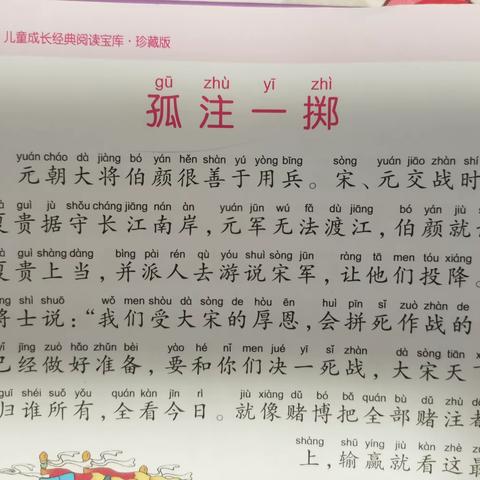 儿童成长经典阅读宝库·珍藏版
gū zhù yī zhì
孤注一掷
yuán cháo dà jiàng bó yán hěn shàn yú yòng bīng sòng yuán jiāo zhàn shí
元朝大将伯颜很善于用兵。宋、元交战时
guì jù shǒu cháng jiāng nán àn yuán jūn wú fǎ dù jiāng bó yán jiù
夏贵据守长江南岸，元军无法渡江，伯颜就
guì shàng dàng bìng pài rén qù yóu shuì sòng jūn ràng tā men tóu xiáng
夏贵上当，并派人去游说宋军，让他们投降。
shì shuō wǒ men shòu dà sòng de hòu ēn huì pīn sǐ zuò zhàn de
将士说：“我们受大宋的厚恩，会拼死作战的
yǐ jīng zuò hǎo zhǔn bèi yào hé nǐ men jué yī sǐ zhàn dà sòng tiān
已经做好准备，要和你们决一死战，大宋天
guī shéi suǒ yǒu quán kàn jīn rì jiù xiàng dǔ bó bǎ quán bù dǔ zhù
归谁所有，全看今日。就像赌博把全部赌注
shàng shū yíng jiù kàn zhè zuì
上，输赢就看这最